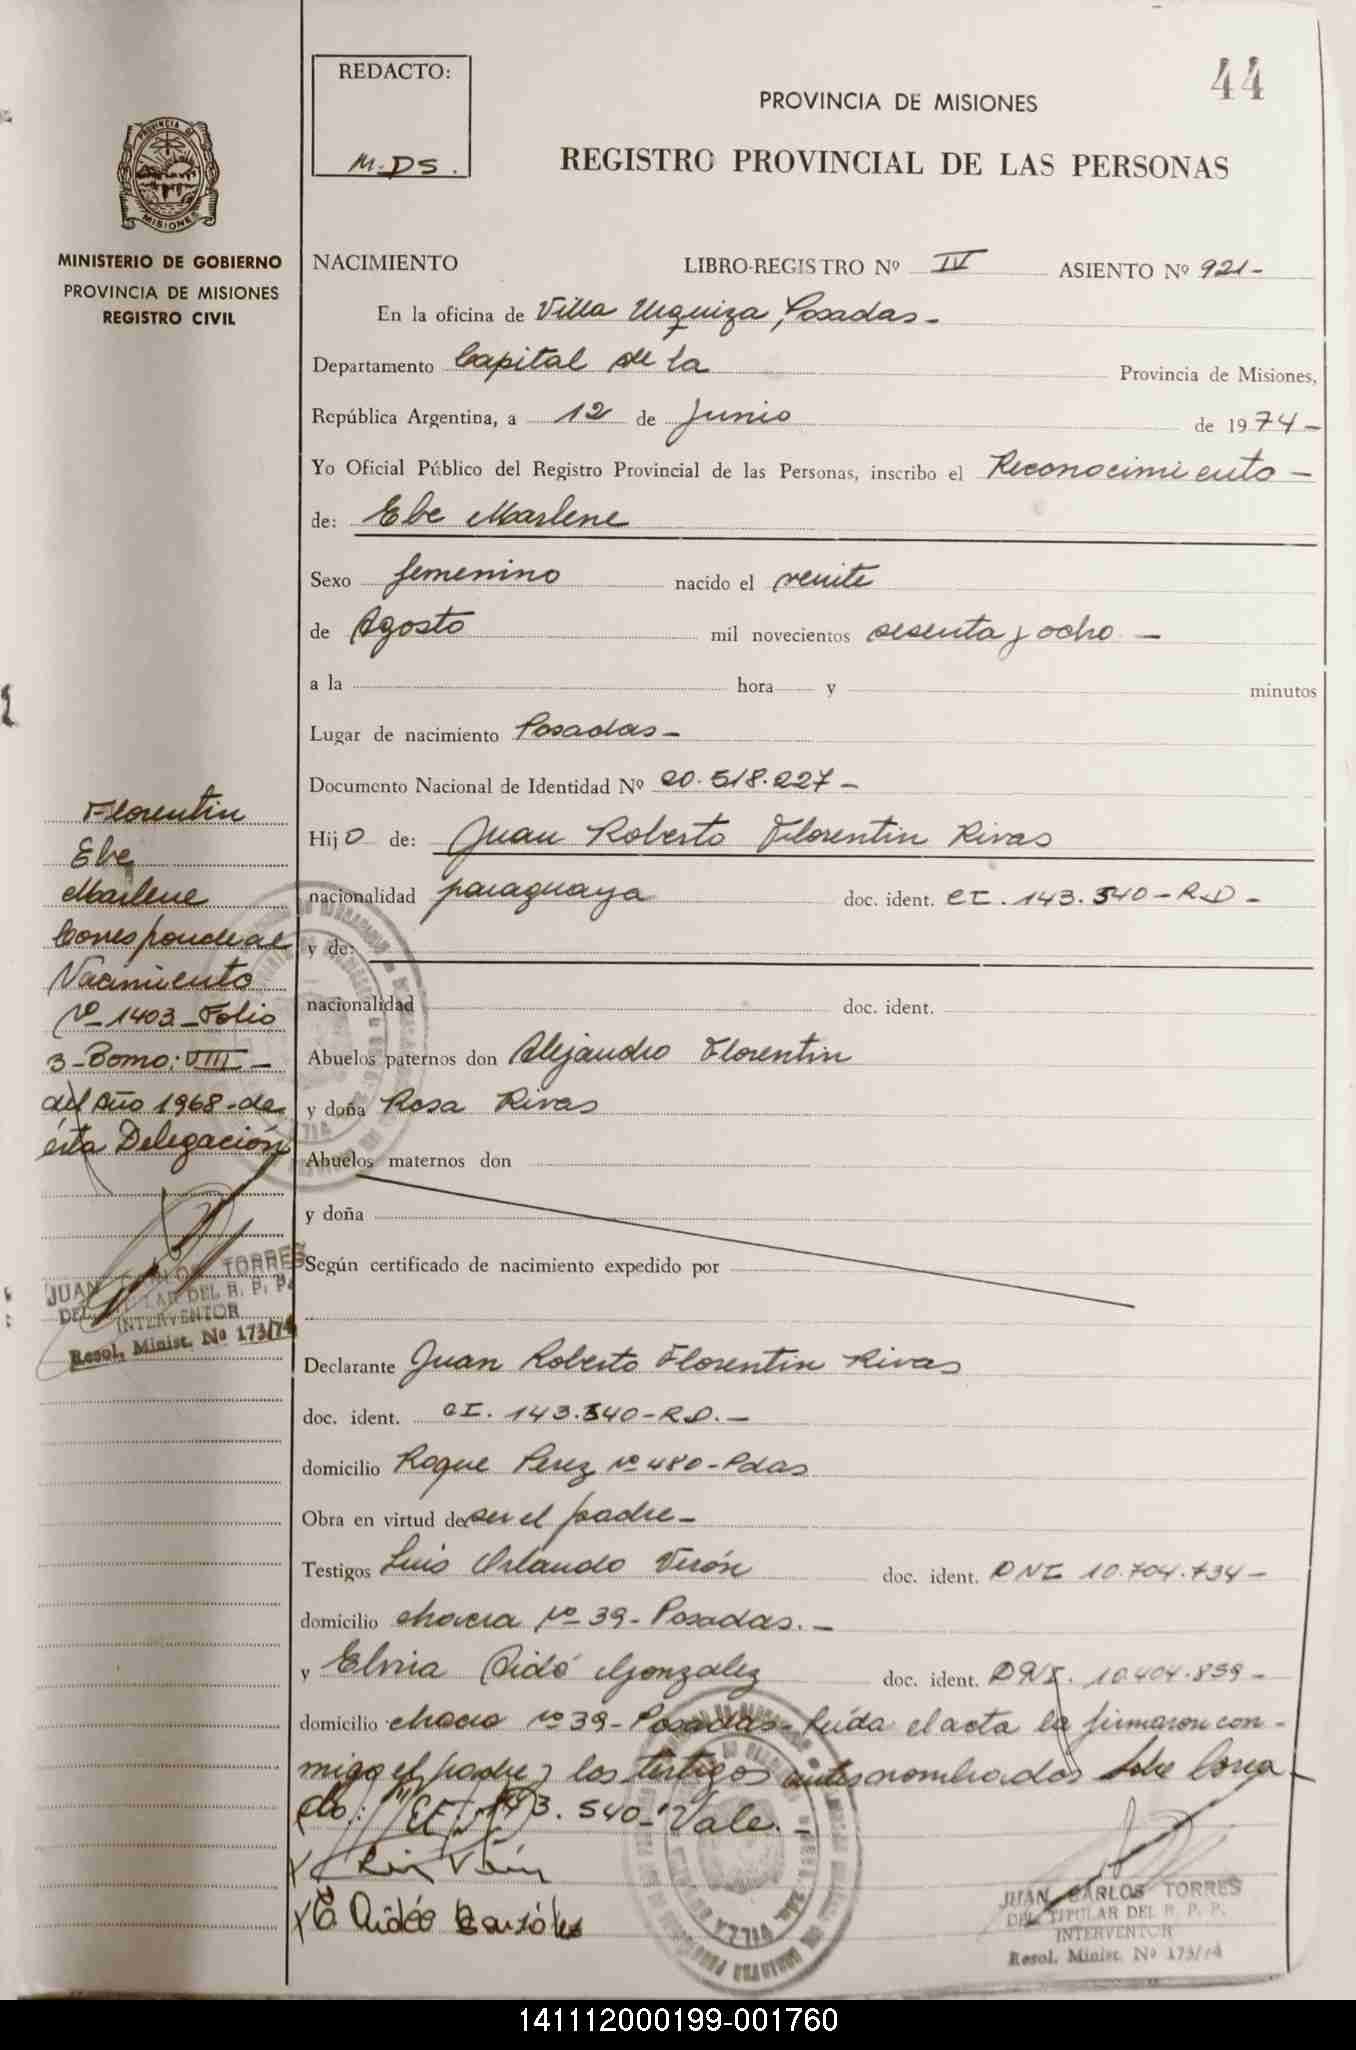 REDACTO:
M. DS.
44
PROVINCIA DE MISIONES
REGISTRO PROVINCIAL DE LAS PERSONAS
PROVINCIA DE
MISIONES
MINISTERIO DE GOBIERNO
PROVINCIA DE MISIONES
REGISTRO CIVIL
NACIMIENTO LIBRO-REGISTRO Nº IV ASIENTO Nº 921-
En la oficina de Villa Urquiza, Posadas-
Departamento Capital de la Provincia de Misiones,
República Argentina, a 12 de Junio de 1974-
Yo Oficial Público del Registro Provincial de las Personas, inscribo el Reconocimiento-
de: Ebe Marlene
Sexo femenino nacido el veinte
de Agosto mil novecientos sesenta y ocho-
a la hora y minutos
Lugar de nacimiento Posadas-
Documento Nacional de Identidad Nº 20.518.227-
Hijo de: Juan Roberto Florentin Rivas
nacionalidad paraguaya doc. ident. CI. 143.540-R.D-
y de:
nacionalidad doc. ident.
Abuelos paternos don Alejandro Florentin
y doña Rosa Rivas
Abuelos maternos don
y doña
Según certificado de nacimiento expedido por
Declarante Juan Roberto Florentin Rivas
doc. ident. CI. 143.540-R.D.-
domicilio Roque Perez nº 480-Pdas
Obra en virtud de ser el padre-
Testigos Luis Orlando Verón doc. ident. DNI 10.704.734-
domicilio chacra Nº 39-Posadas.-
y Elvia Aidé Gonzalez doc. ident. DNI. 10.404.839-
domicilio chacra nº 39-Posadas-Leída el acta la firmaron con-
migo el padre y los testigos antes nombrados Sobre borra-
do: "CI. 143.540-" Vale.-
E Aideé Gonzáles
JUAN CARLOS TORRES
DEL. TITULAR DEL R. P. P.
INTERVENTOR
Resol. Minist. Nº 173/74
Florentin
Ebe
Marlene
Corresponde al
Nacimiento
Nº 1403-Folio
3-Tomo: VIII-
del Año 1968-de
ésta Delegación
JUAN CARLOS TORRES
DEL. TITULAR DEL R. P. P.
INTERVENTOR
Resol. Minist. Nº 173/74
141112000199-001760